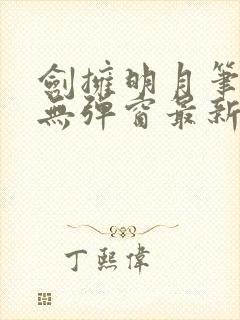 劍擁明月筆
無彈窗最新
丁熙偉